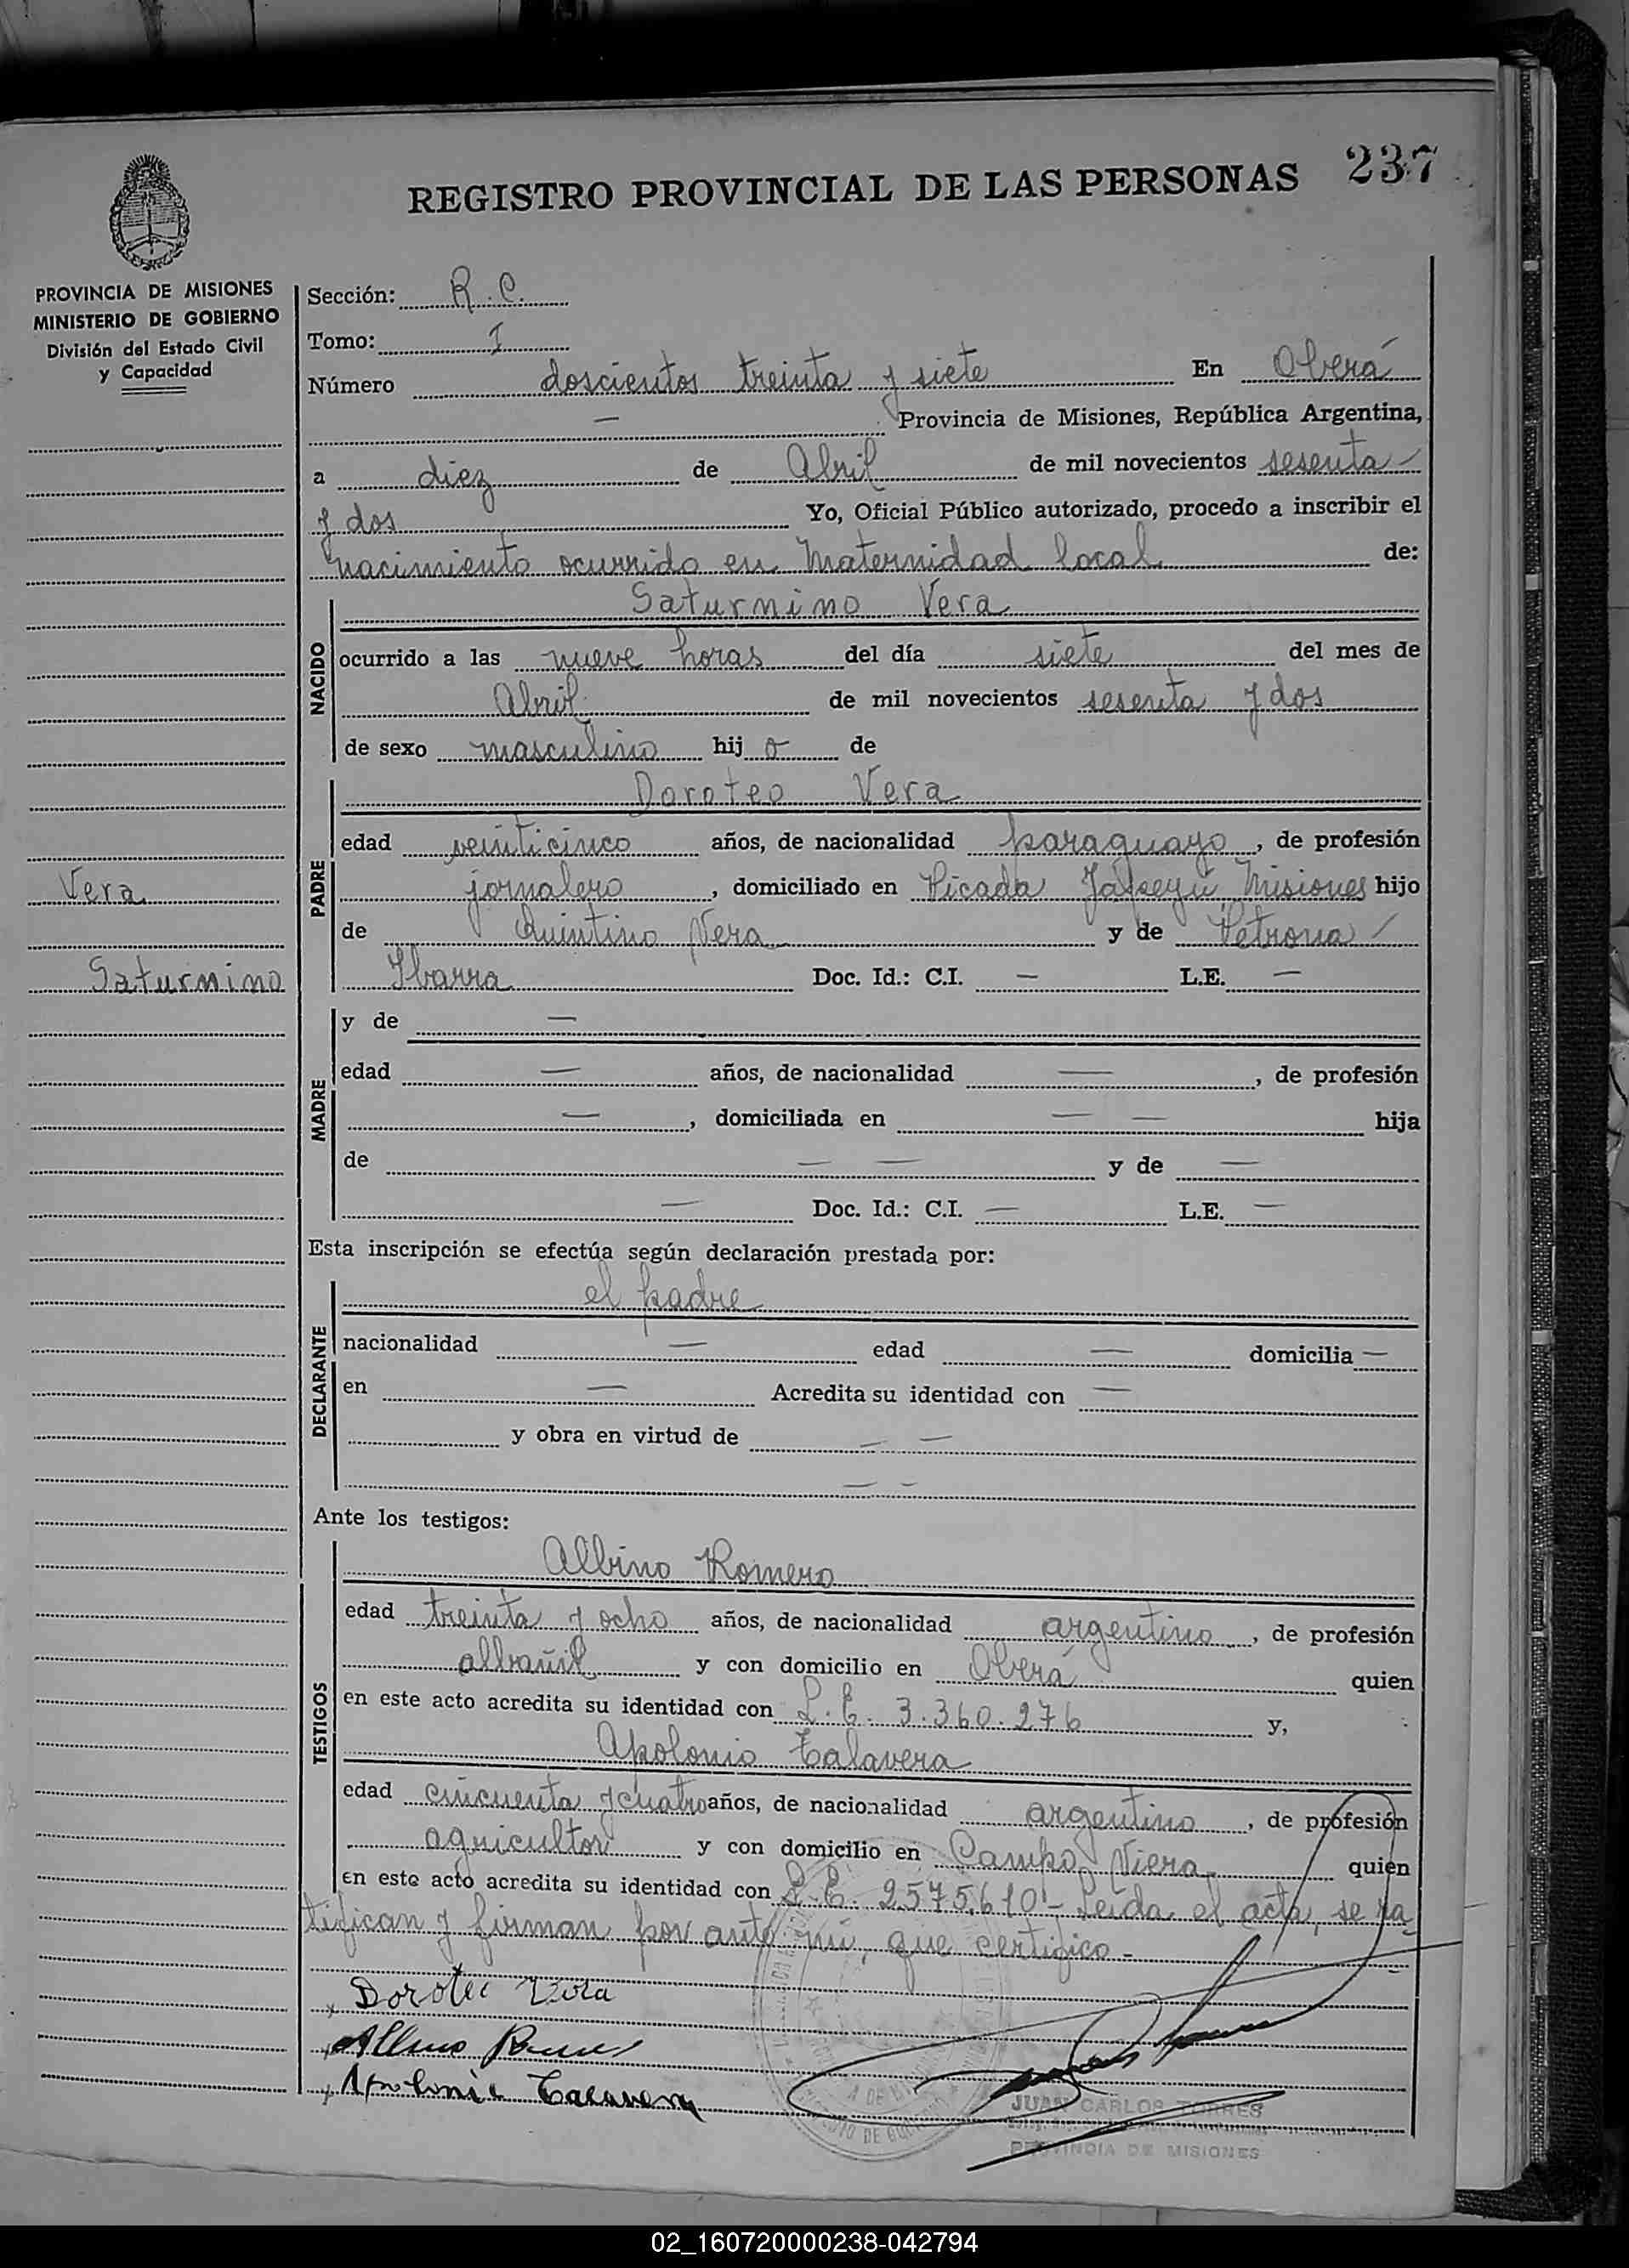 REGISTRO PROVINCIAL DE LAS PERSONAS 237
PROVINCIA DE MISIONES
MINISTERIO DE GOBIERNO
División del Estado Civil
y Capacidad
Vera
Saturnino
Sección: R. C.
Tomo: I
Número doscientos treinta y siete En Oberá
— Provincia de Misiones, República Argentina,
a diez de Abril de mil novecientos sesenta
y dos Yo, Oficial Público autorizado, procedo a inscribir el
nacimiento ocurrido en Maternidad local de:
NACIDO
Saturnino Vera
ocurrido a las nueve horas del día siete del mes de
Abril de mil novecientos sesenta y dos
de sexo masculino hijo de
PADRE
Doroteo Vera
edad veinticinco años, de nacionalidad paraguayo, de profesión
jornalero, domiciliado en Picada Yapeyú Misiones hijo
de Quintino Vera y de Petrona
Ibarra Doc. Id.: C.I. — L.E. —
MADRE
y de —
edad — años, de nacionalidad —, de profesión
—, domiciliada en — — hija
de — — y de —
— Doc. Id.: C.I. — L.E. —
Esta inscripción se efectúa según declaración prestada por:
DECLARANTE
el padre
nacionalidad — edad — domicilia —
en — Acredita su identidad con —
y obra en virtud de — —
— -
Ante los testigos:
TESTIGOS
Albino Romero
edad treinta y ocho años, de nacionalidad argentino, de profesión
albañil y con domicilio en Oberá quien
en este acto acredita su identidad con L.E. 3.360.276 y,
Apolonio Talavera
edad cincuenta y cuatro años, de nacionalidad argentino, de profesión
agricultor y con domicilio en Campo Viera quien
en este acto acredita su identidad con L.E. 2575.610 - Leída el acta, se ra-
tifican y firman por ante mí, que certifico -
x Doroteo Vera
x Albino
x Apolonio Talavera
JUAN CARLOS TORRES
PROVINCIA DE MISIONES
02_160720000238-042794